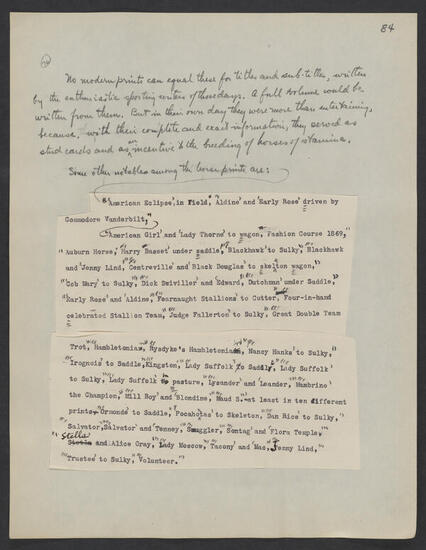 84
No modern prints can equal these for titles and sub-titles, written
by the enthusiastic sporting writers of those days. A full volume could be
written from them. But in their own day they were more than entertaining,
because, with their complete and exact information, they served as
stud cards and as an incentive to the breeding of horses of stamina.
Some other notables among the horse prints are:
"American Eclipse, in Field, Aldine' and 'Early Rose' driven by
Commodore Vanderbilt,"
'American Girl' and 'Lady Thorne' to wagon, Fashion Course 1869,
"Auburn Horse, Harry Basset' under saddle, Blackhawk' to Sulky, Blackhawk
and 'Jenny Lind, Centreville' and Black Douglas' to skelton wagon,"
"Cob Mary' to Sulky, Dick Swiviller' and 'Edward, Dutchman' under Saddle,"
"Early Rose' and Aldine, Fearnaught Stallions' to Cutter, Four-in-hand
celebrated Stallion Team, Judge Fullerton' to Sulky, Great Double Team
Trot, Hambletonian, Rysdyke's Hambletonian, Nancy Hanks' to Sulky,
"Iroquois' to Saddle, Kingston, Lady Suffolk' to Saddle, Lady Suffolk'
to Sulky, Lady Suffolk to pasture, Lysander' and Leander, Mambrino
the Champion, Mill Boy' and Blondine, Maud S.- at least in ten different
prints- Ormonde' to Saddle, Pocahontas' to Skeleton, Dan Rice' to Sulky,"
"Salvator, Salvator' and Tenney, Smuggler, Sontag' and 'Flora Temple,"
"Stella and Alice Gray, Lady Moscow, Tacony' and Mac, Jenny Lind,
"Trustee' to Sulky, Volunteer."